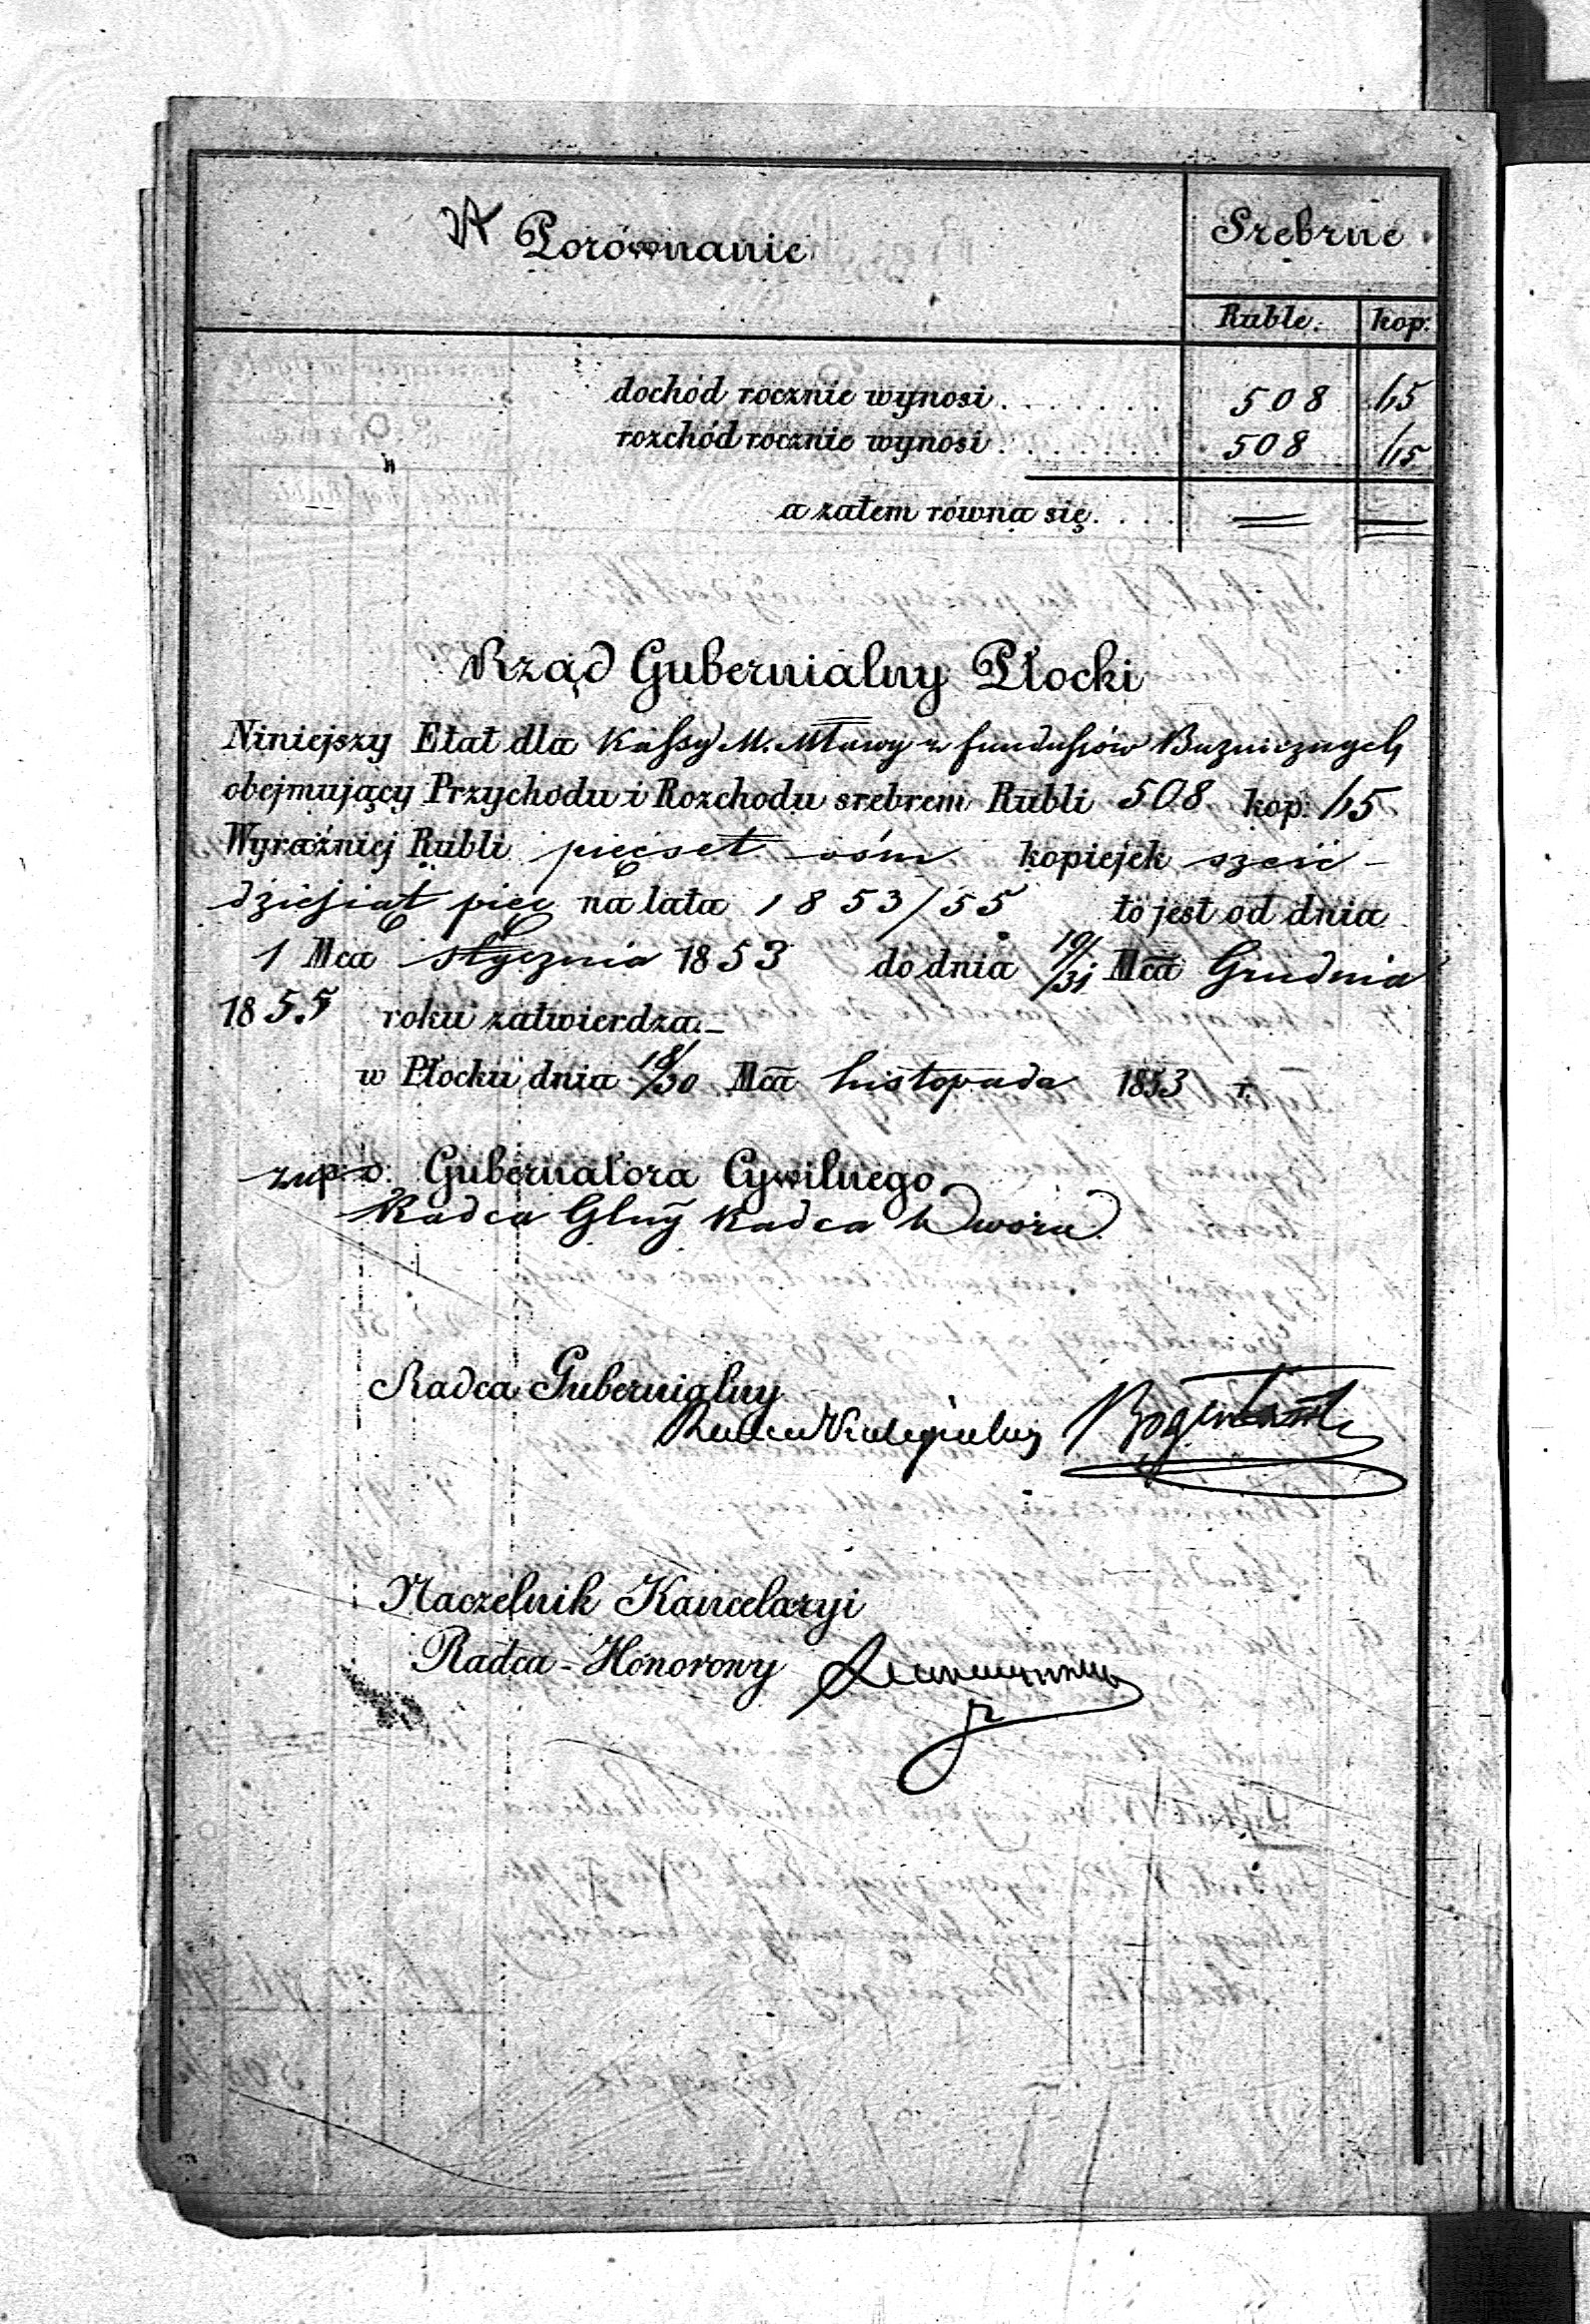 Porównanie
Srebrne
Ruble. kop:
dochód rocznie wynosi . . . . . . . 508 65
rozchód rocznie wynosi . . . . . . . 508 65
a zatem równa się. . . .
Rząd Gubernialny Płocki
Niniejszy Etat dla Kassy M. Mławy z funduszów Bużnicznych
obejmujący Przychodu i Rozchodu srebrem Rubli 508 kop: 65
Wyraźniej Rubli pięćset ośm kopiejek sześć-
dziesiąt pięć na lata 1853/55 to jest od dnia
1 Mca stycznia 1853 do dnia 19/31 Mca Grudnia
1855 roku zatwierdza.
w Płocku dnia 18/30 Mca listopada 1853 r.
Gubernatora Cywilnego
Radca Glny Radca Dworu
Radca Gubernialny
Radca Kolegialny
Naczelnik Kancelaryi
Radca-Honorowy